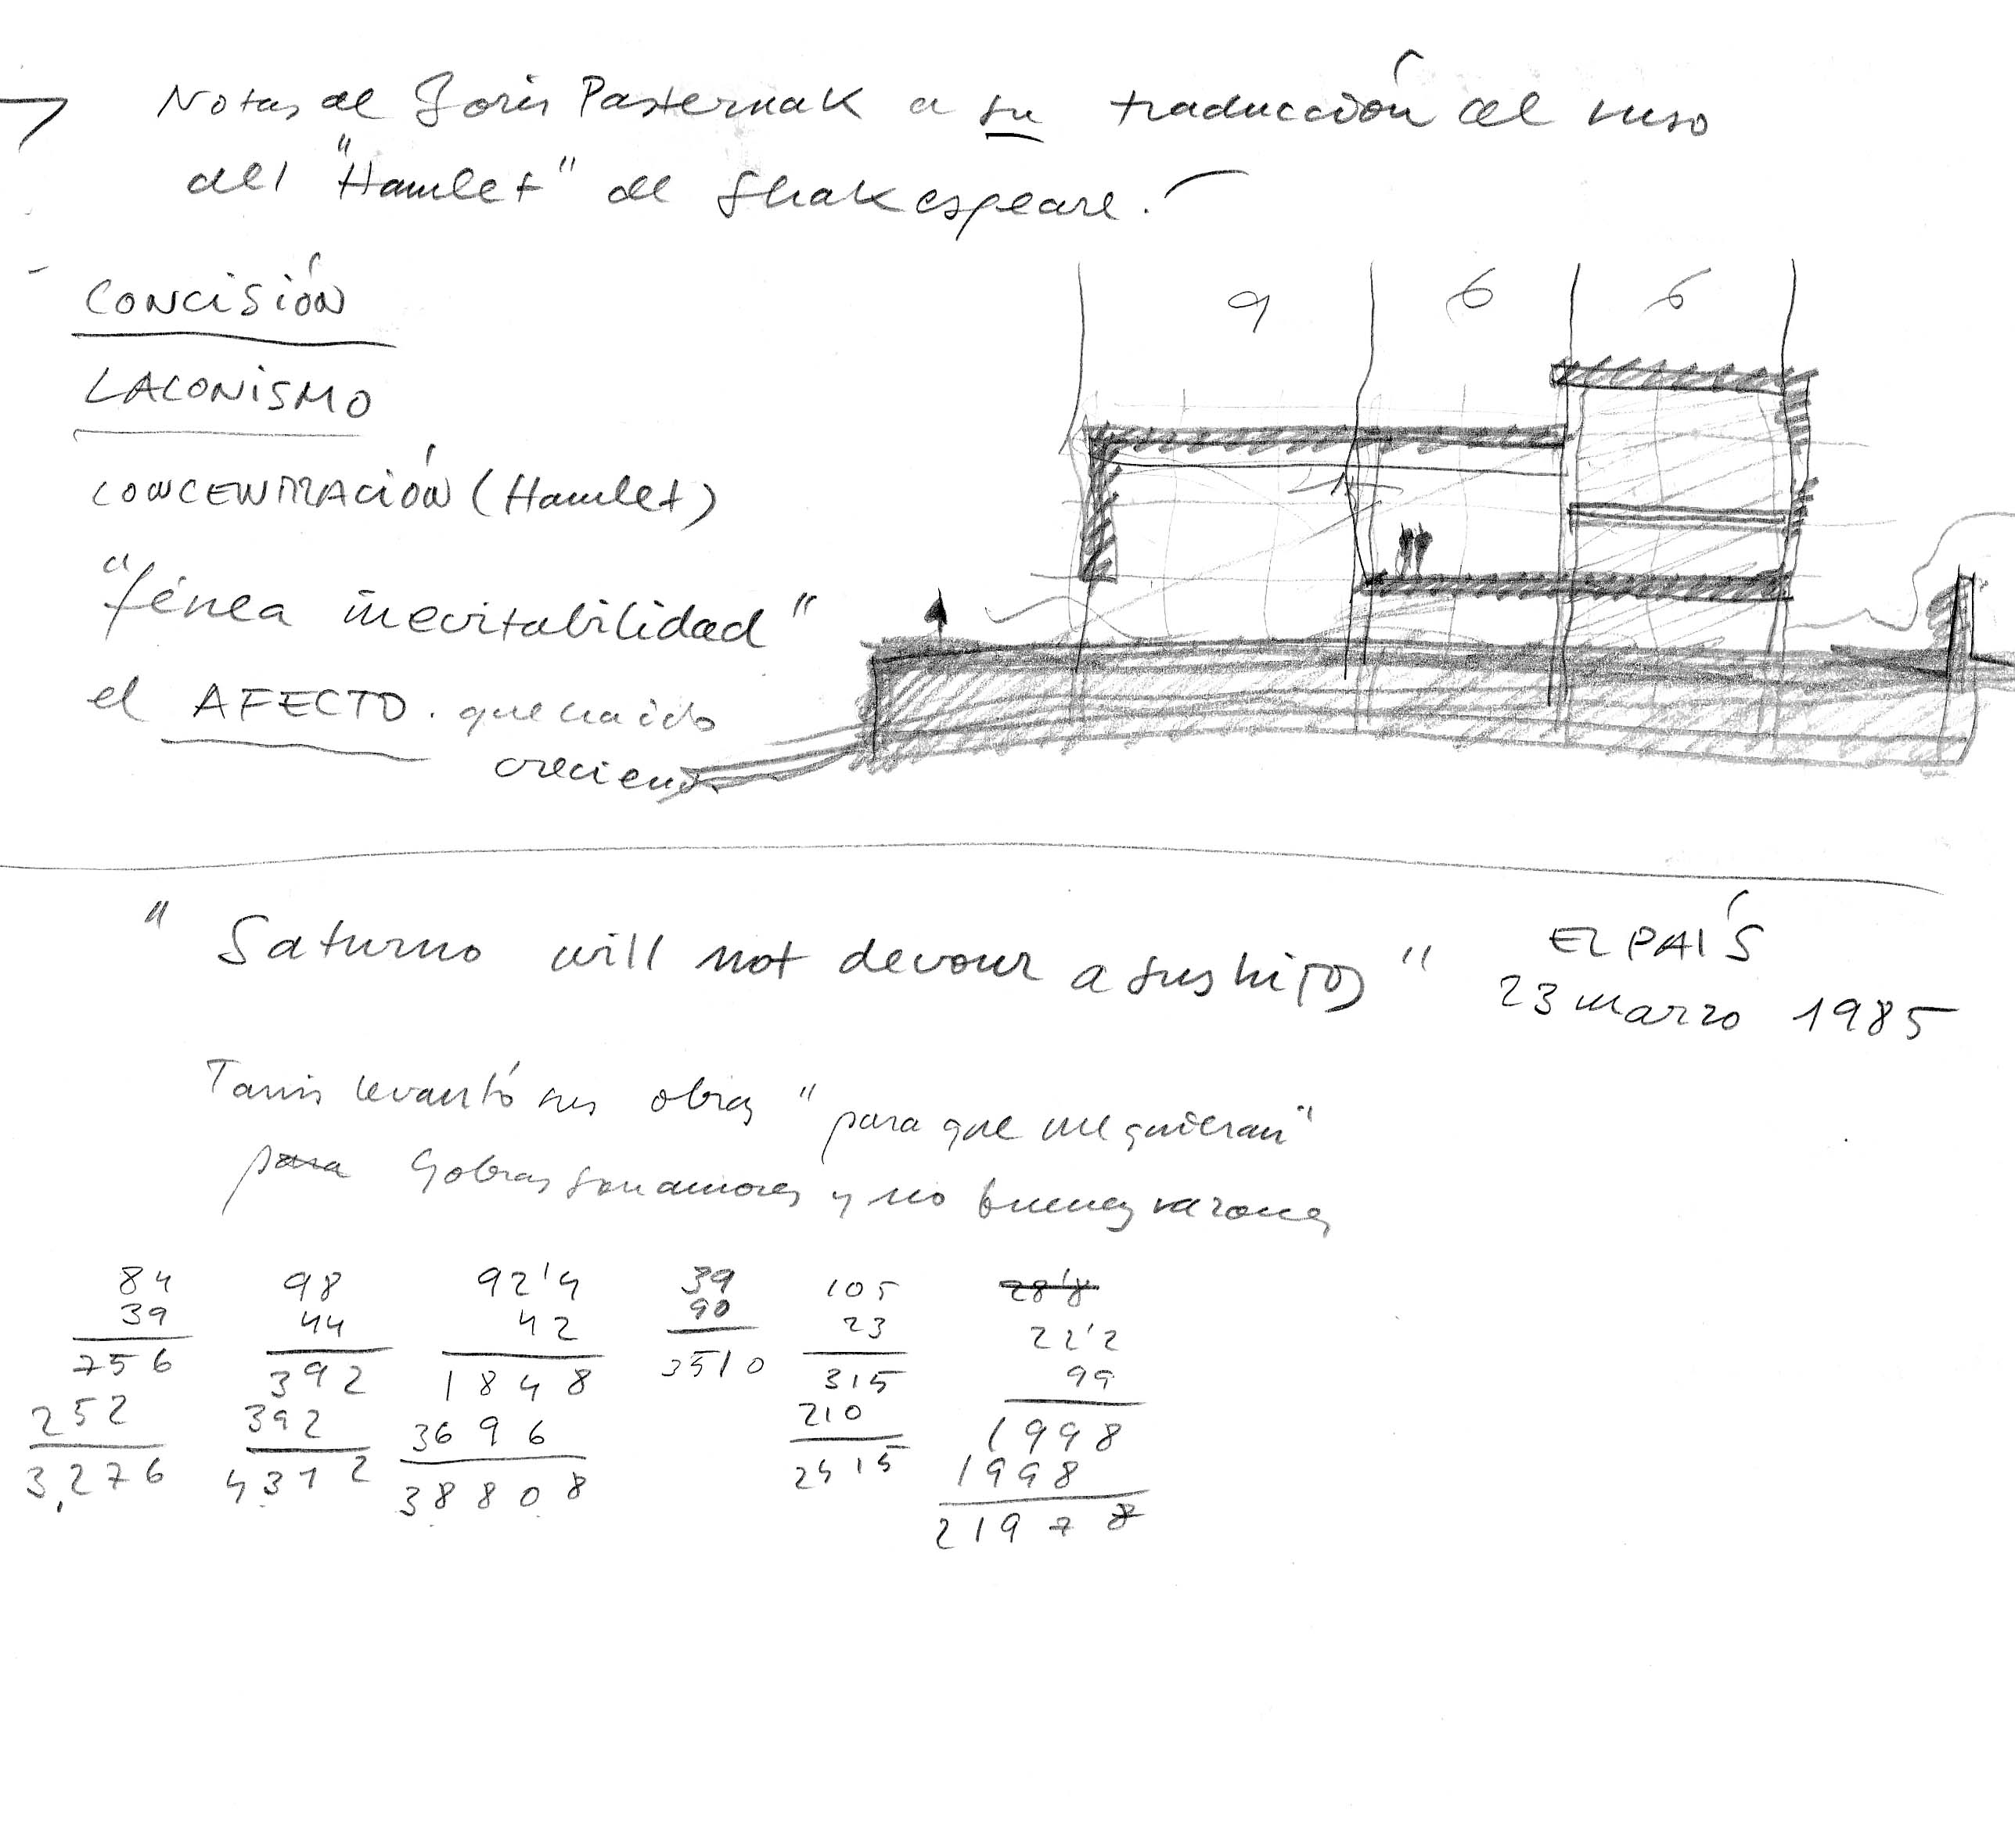 Notas de Boris Pasternak a su traducción al ruso
del "Hamlet" de Shakespeare.
CONCISIÓN
LACONISMO
CONCENTRACIÓN (Hamlet)
"férrea inevitabilidad"
el AFECTO. que ha ido
creciendo
9 6 6
"Saturno will not devour a sus hijos"
EL PAÍS
23 marzo 1985
levantó sus obras "para que me quieran"
para obras son amores y no buenas razones
84 98 92'4 39 105 28'8
39 44 42 90 23 22'2
756 392 1848 3510 315 99
252 392 3696 210 1998
3,276 4312 38808 2415 1998
21978